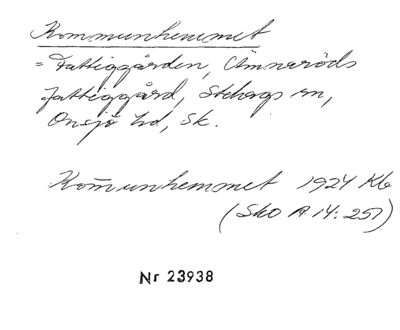 Kommunhemmet
= Fattiggården, Ämneröds
fattiggård, Stehags sn,
Onsjö hd, Sk.
Kom̄unhemmet 1924 Kb
(Sko A 14: 257)
Nr 23938